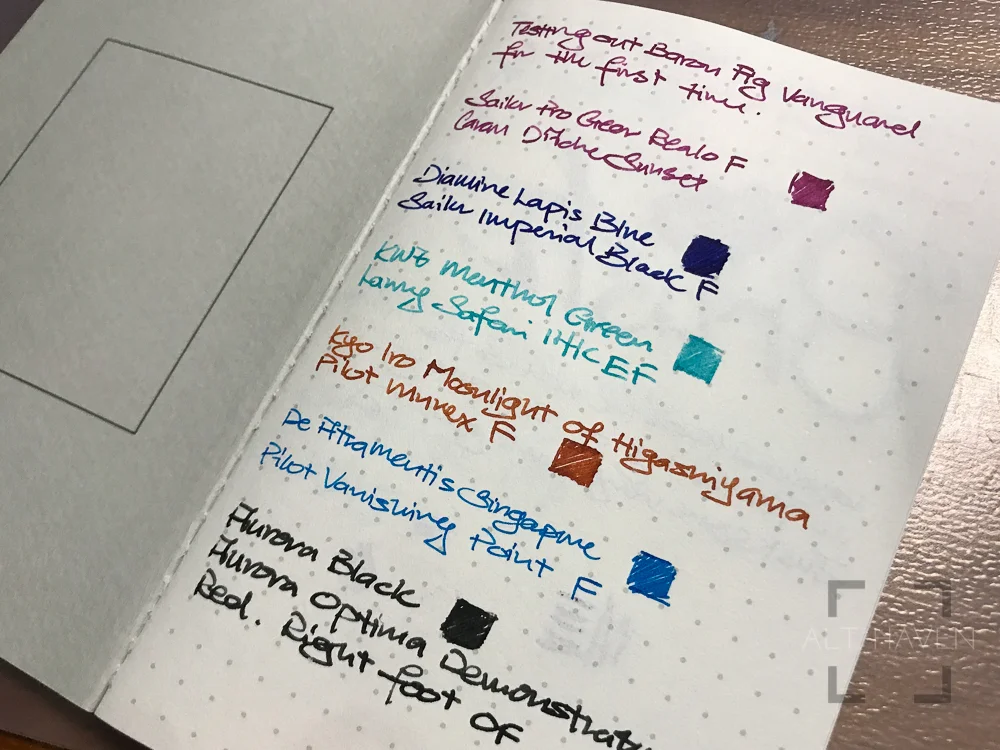 Testing out Baron Fig Vanguard
for the first time.
Sailor Pro Gear Realo F
Caran D'Ache Sunset
Diamine Lapis Blue
Sailor Imperial Black F
KWZ Menthol Green
Lamy Safari ITHC EF
Kyo Iro Moonlight of Higashiyama
Pilot Murex F
De Atramentis Singapore
Pilot Vanishing Point F
Aurora Black
Aurora Optima Demonstrator
Red. Right foot of
ALT HAVEN